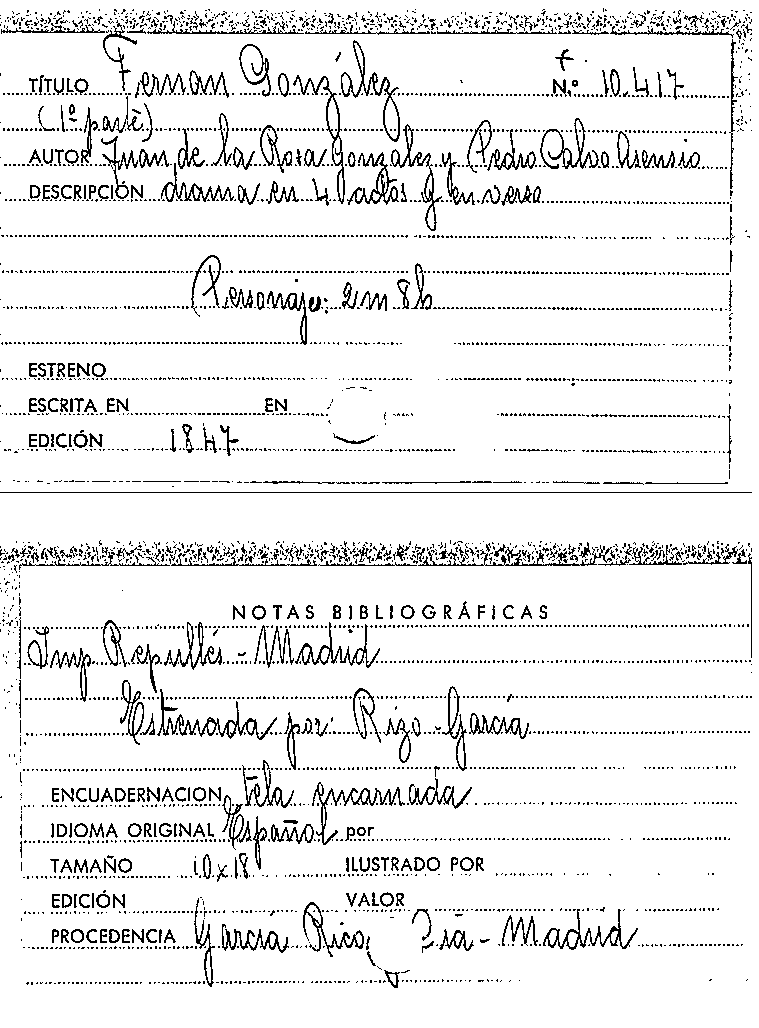 TÍTULO Fernan González
f
N.º 10.417
(1ª parte)
AUTOR Juan de la Rosa González y Pedro Calvo Asensio
DESCRIPCIÓN drama en 4 actos y en verso
Personajes: 2 m 8 h
ESTRENO
ESCRITA EN EN
EDICIÓN 1847
NOTAS BIBLIOGRÁFICAS
Imp Repullés - Madrid
Estrenada por: Rizo - García
ENCUADERNACION tela encarnada
IDIOMA ORIGINAL Español por
TAMAÑO 10x18 ILUSTRADO POR
EDICIÓN VALOR
PROCEDENCIA García Rico - Madrid